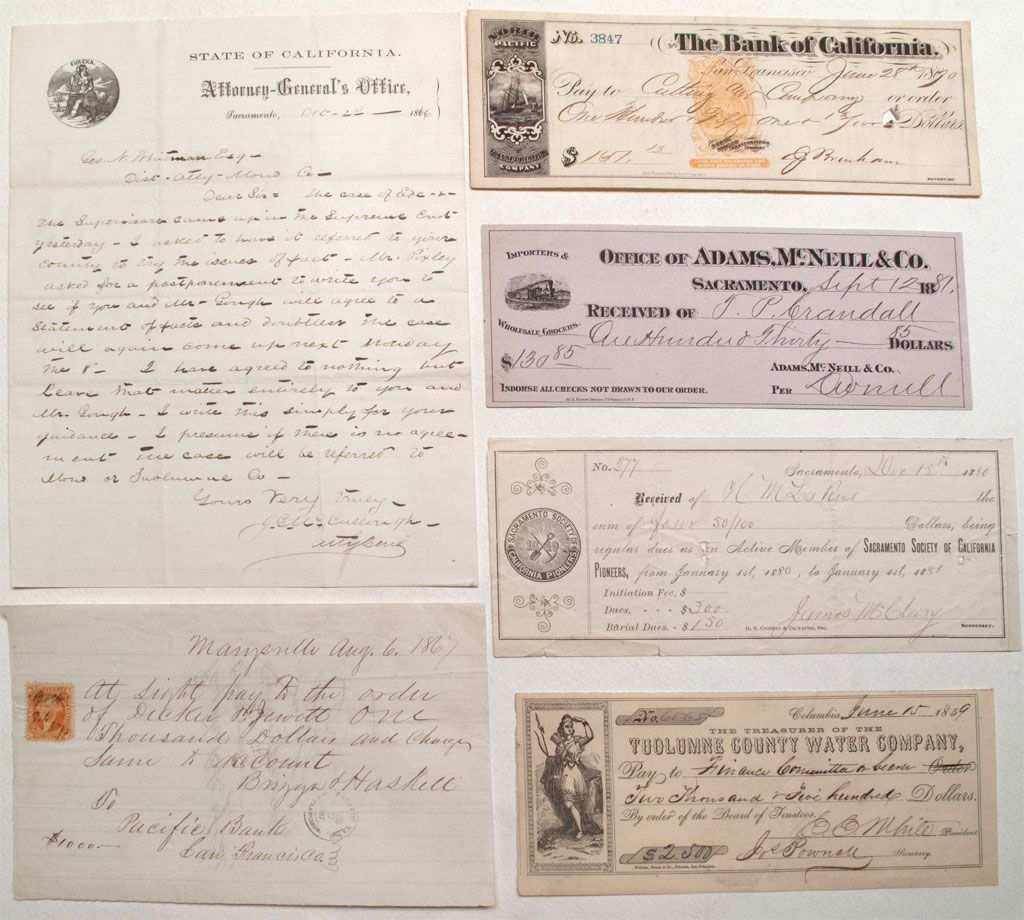 EUREKA.
STATE OF CALIFORNIA.
Attorney-General's Office,
Sacramento, Oct- 22 - 1866
Geo. N. Whitman Esq -
Dist- Atty- Mono Co-
Dear Sir- The case of
The Supervisors came up in the Supreme Court
yesterday - I asked to have it referred to your
county to try the issues of fact - Mr. Pixley
asked for a postponement to write you to
see if you and Mr. Gough will agree to a
Statement of facts and doubtless the case
will again come up next Monday
the 8- I have agreed to nothing but
leave that matter entirely to you and
Mr. Gough - I write this simply for your
guidance - I presume if there is no agree-
ment the case will be referred to
Mono or Tuolumne Co -
Yours Very Truly -
J. G. McCullough -
Atty Genl
Marysville Aug. 6. 1867
At Sight pay to the order
of Decker & Jewett One
Thousand Dollars and Charge
Same to account
Briggs & Haskell
To
Pacific Bank
$1000-
San Francisco
NORTH
PACIFIC
TRANSPORTATION
COMPANY
No. 3847
The Bank of California.
San Francisco June 28th 1870
Pay to Cutting and Company or order
One Hundred & Fifty one & Dollars
$ 151 13
Brenham
SECRETARY
IMPORTERS &
WHOLESALE GROCERS.
OFFICE OF ADAMS, McNEILL & CO.
SACRAMENTO, Sept 12 1881.
RECEIVED OF T. P. Crandall
One Hundred Thirty 85 DOLLARS
$130 85
ADAMS, McNEILL & CO.
INDORSE ALL CHECKS NOT DRAWN TO OUR ORDER.
PER
SACRAMENTO SOCIETY OF
CALIFORNIA PIONEERS
1849
No. 277
Sacramento, Dec 15th 1880
Received of H M La Rue the
sum of four 50/100 Dollars, being
regular dues as an Active Member of SACRAMENTO SOCIETY OF CALIFORNIA
PIONEERS, from January 1st, 1880, to January 1st, 1881
Initiation Fee, $
Dues, - - - $3.00
Burial Dues. - $1.50
James McCleery
H. S. Crocker & Co. print, Sac.
Secretary.
No. 6565
Columbia, June 15 1859
THE TREASURER OF THE
TUOLUMNE COUNTY WATER COMPANY,
Pay to Finance Committee or bearer Order
Two Thousand & Five hundred Dollars.
By order of the Board of Trustees.
President
$2.500
Jos Pownall
Secretary.